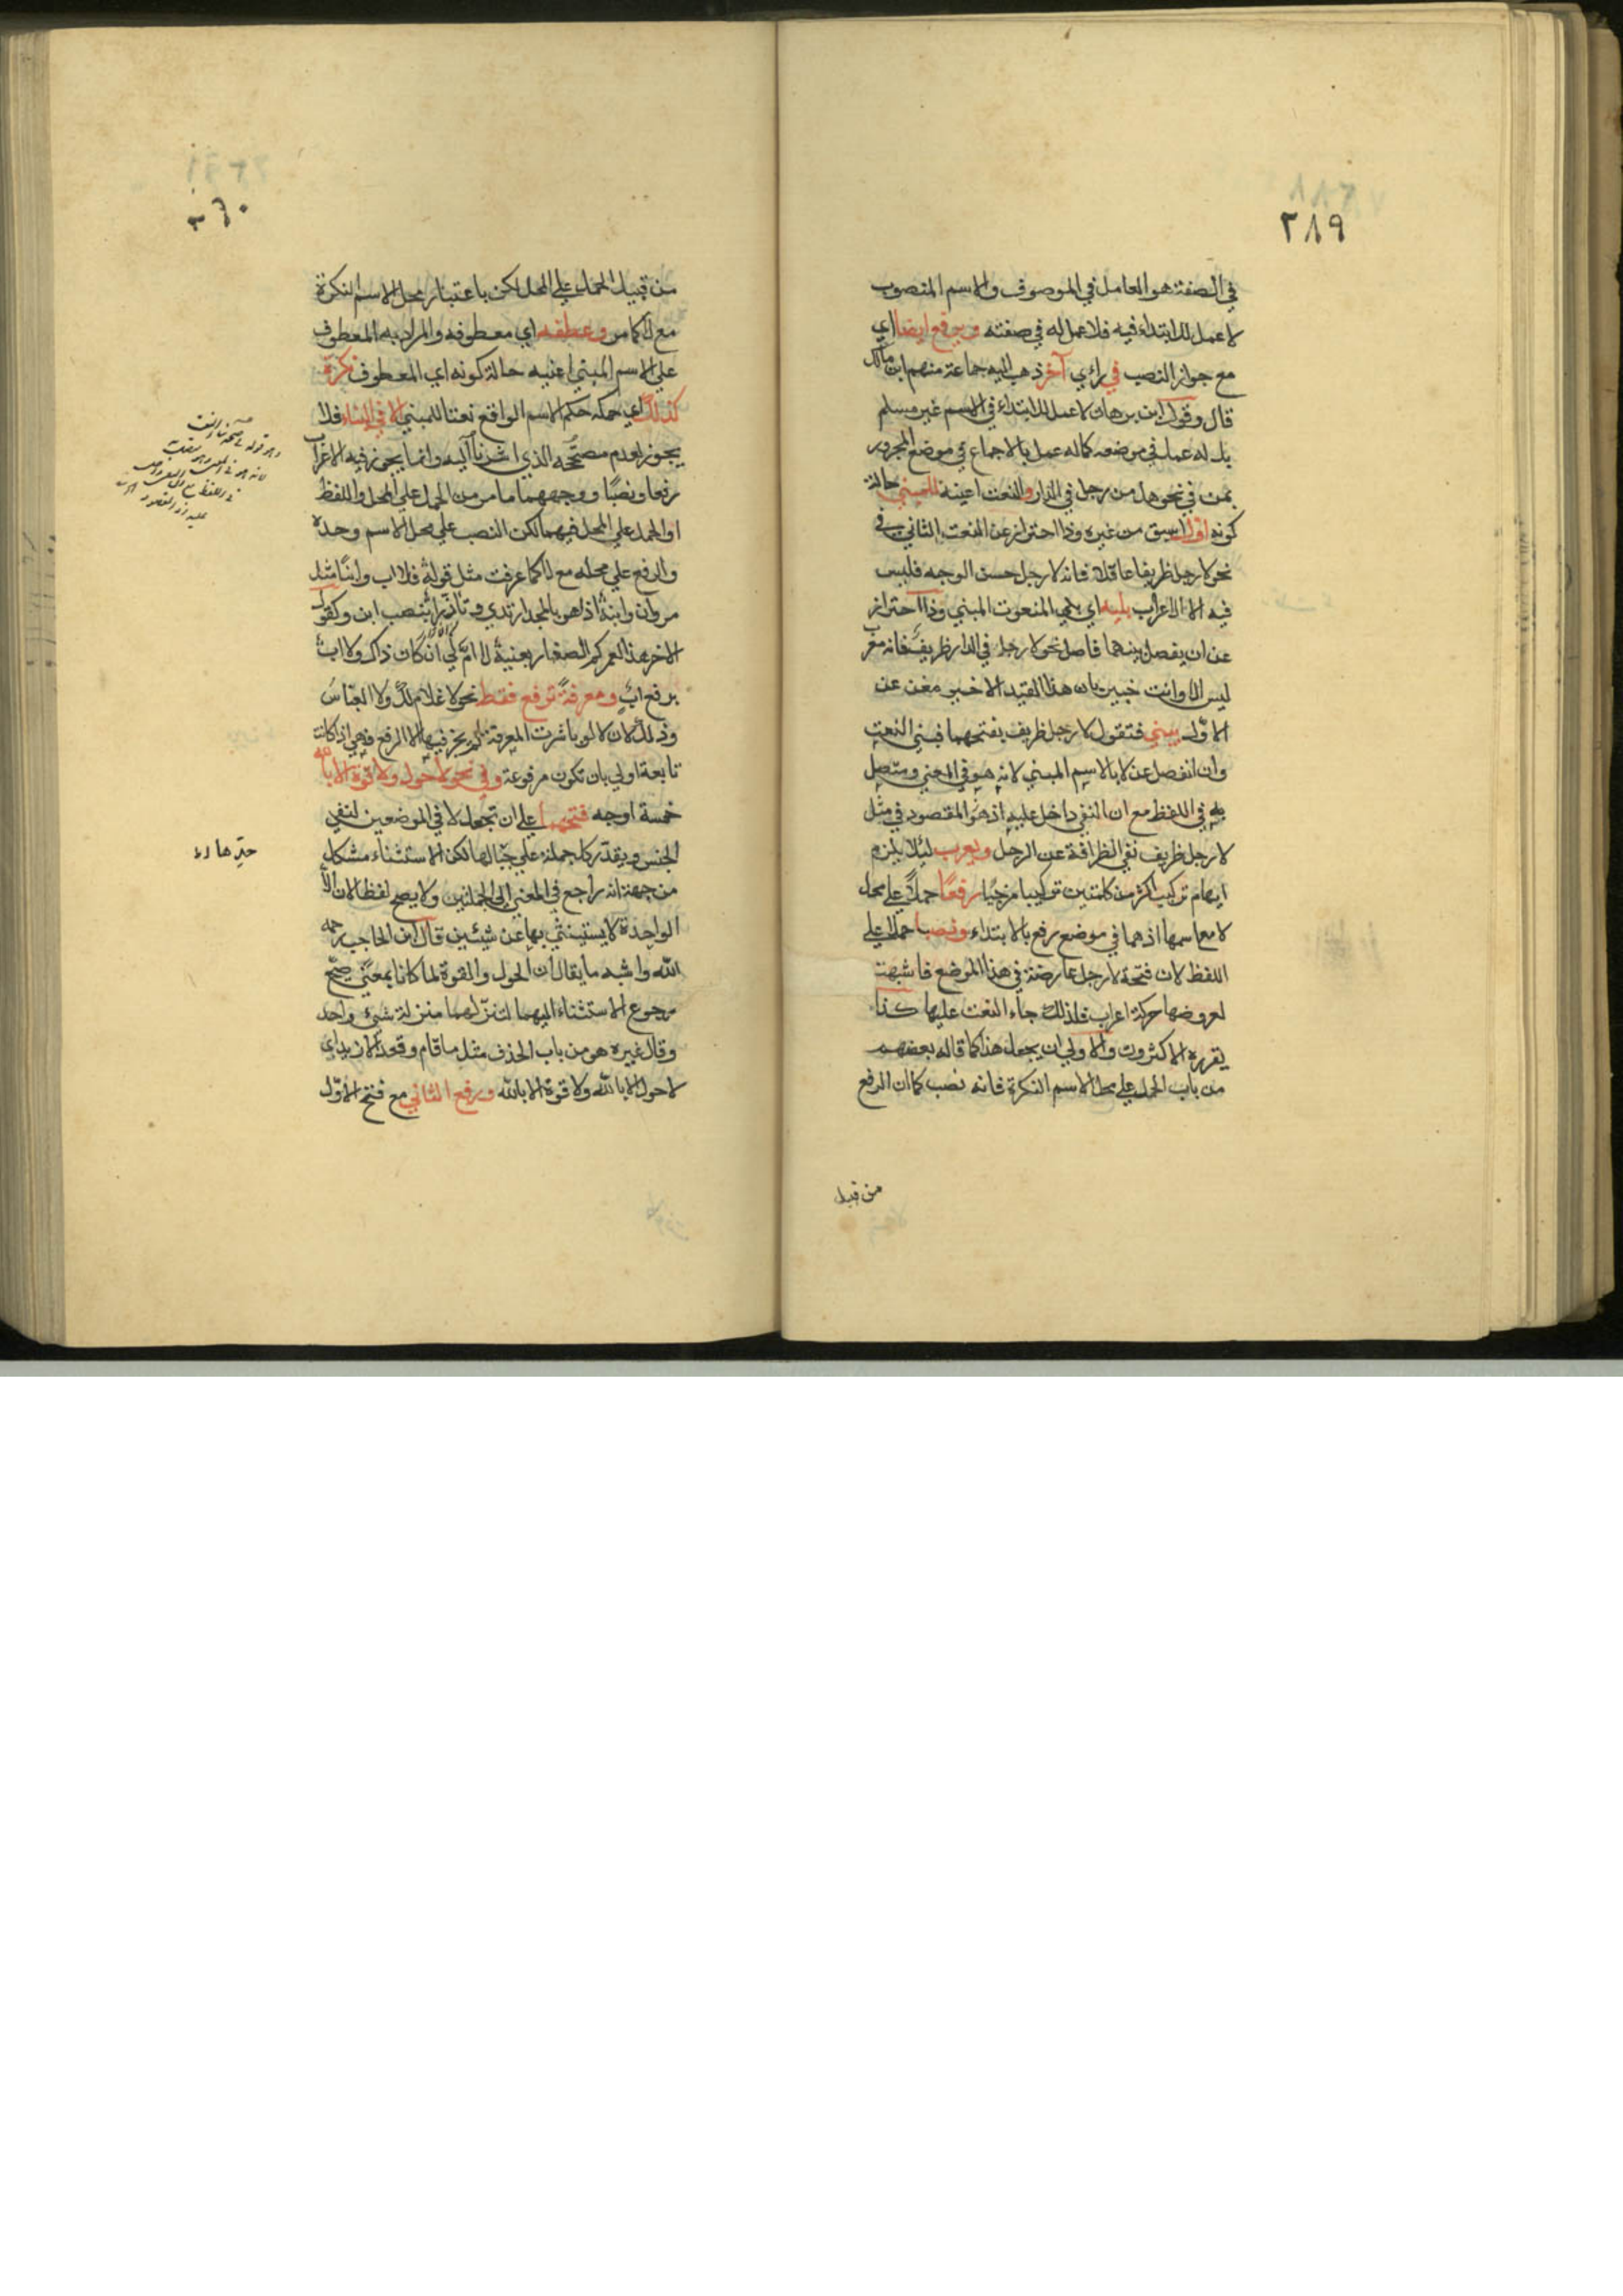 ٢٨٩
في الصفة هو العامل في الموصوف والاسم المنصوب
لا عمل للابتداء فيه فلا عمل له في صفته ويرفع ايضا اي
مع جواز النصب في رأي آخر ذهب اليه جماعة منهم ابن مالك
قال وقول ابن برهان لا عمل للابتداء في الاسم غير مسلم
بل له عمل في موضعه كما له عمل بالاجماع في موضع المجرور
بمن في نحو هل من رجل في الدار والنعت اعينه للمبني حالة
كونه اولا اسبق من غيره وذا احتراز عن النعت الثاني في
نحو لا رجل ظريفا عاقلا فانه لا رجل حسن الوجه فليس
فيه الا الاعراب يليه اي يلي المنعوت المبني وذا احتراز
عن ان يفصل بينهما فاصل نحو لا رجل في الدار ظريف فانه معرب
ليس الا وانت خبير بان هذا القيد الاخير مغن عن
الاول يبني فتقول لا رجل ظريف بفتحهما فبني النعت
وان انفصل عن لا بالاسم المبني لانه هو في المعني ومتصل
به في اللفظ مع ان النفي داخل عليه اذ هو المقصود في مثل
لا رجل ظريف نفي الظرافة عن الرجل ويعرب لئلا يلزم
ايهام تركيب اكثر من كلمتين تركيبا مزجيا رفعا حملا علي محل
لا مع اسمها اذ هما في موضع رفع بالابتداء ونصبا حملا علي
اللفظ لان فتحة لا رجل عارضة في هذا الموضع فاشبهت
لعروضها حركة اعراب فلذلك جاء النعت عليها كذا
يقرره الاكثرون والاولي ان يجعل هذا كما قاله بعضهم
من باب الحمل علي محل الاسم النكرة فانه نصب كما ان الرفع
من قبيل
من قبيل الحمل علي المحل لكن باعتبار محل الاسم النكرة
مع لا كما مر وعطفه اي معطوفه والمراد به المعطوف
علي الاسم المبني اعنيه حالة كونه اي المعطوف نكرة
كذلك اي حكمه حكم الاسم الواقع نعتا للمبني الا في البناء فلا
يجوز لعدم مصححه الذي اشرنا اليه وانما يجوز فيه الاعراب
رفعا ونصبا ووجههما ما مر من الحمل علي المحل واللفظ
او الحمل علي المحل فيهما لكن النصب علي محل الاسم وحده
والرفع علي محله مع لا كما عرفت مثل قوله فلا اب وابنا مثل
مروان وابنه اذا هو بالمجد ارتدي وتأزرا بنصب ابن وكقول
الاخر هذا لعمركم الصغار بعينه لا ام لي ان كان ذاك ولا اب
برفع اب ومعرفة ترفع فقط نحو لا غلام لك ولا العباس
وذلك لان لا لو باشرت المعرفة لم يجز فيها الا الرفع فهي اذا كانت
تابعة اولي بان تكون مرفوعة وفي نحو لا حول ولا قوة الا بالله
خمسة اوجه فتحهما علي ان تجعل لا في الموضعين لنفي
الجنس ويقدر كل جملة علي حيالها لكن الاستثناء مشكل
من جهة انه راجع في المعني الي الجملتين ولا يصح لفظا لان الا
الواحدة لا يستثني بها عن شيئين قال ابن الحاجب رحمه
الله واشبه ما يقال ان الحول والقوة لما كانا بمعني صح
رجوع الاستثناء اليهما لتنزلهما منزلة شيء واحد
وقال غيره هو من باب الحذف مثل ما قام وقعد الا زيد اي
لا حول الا بالله ولا قوة الا بالله ورفع الثاني مع فتح الاول